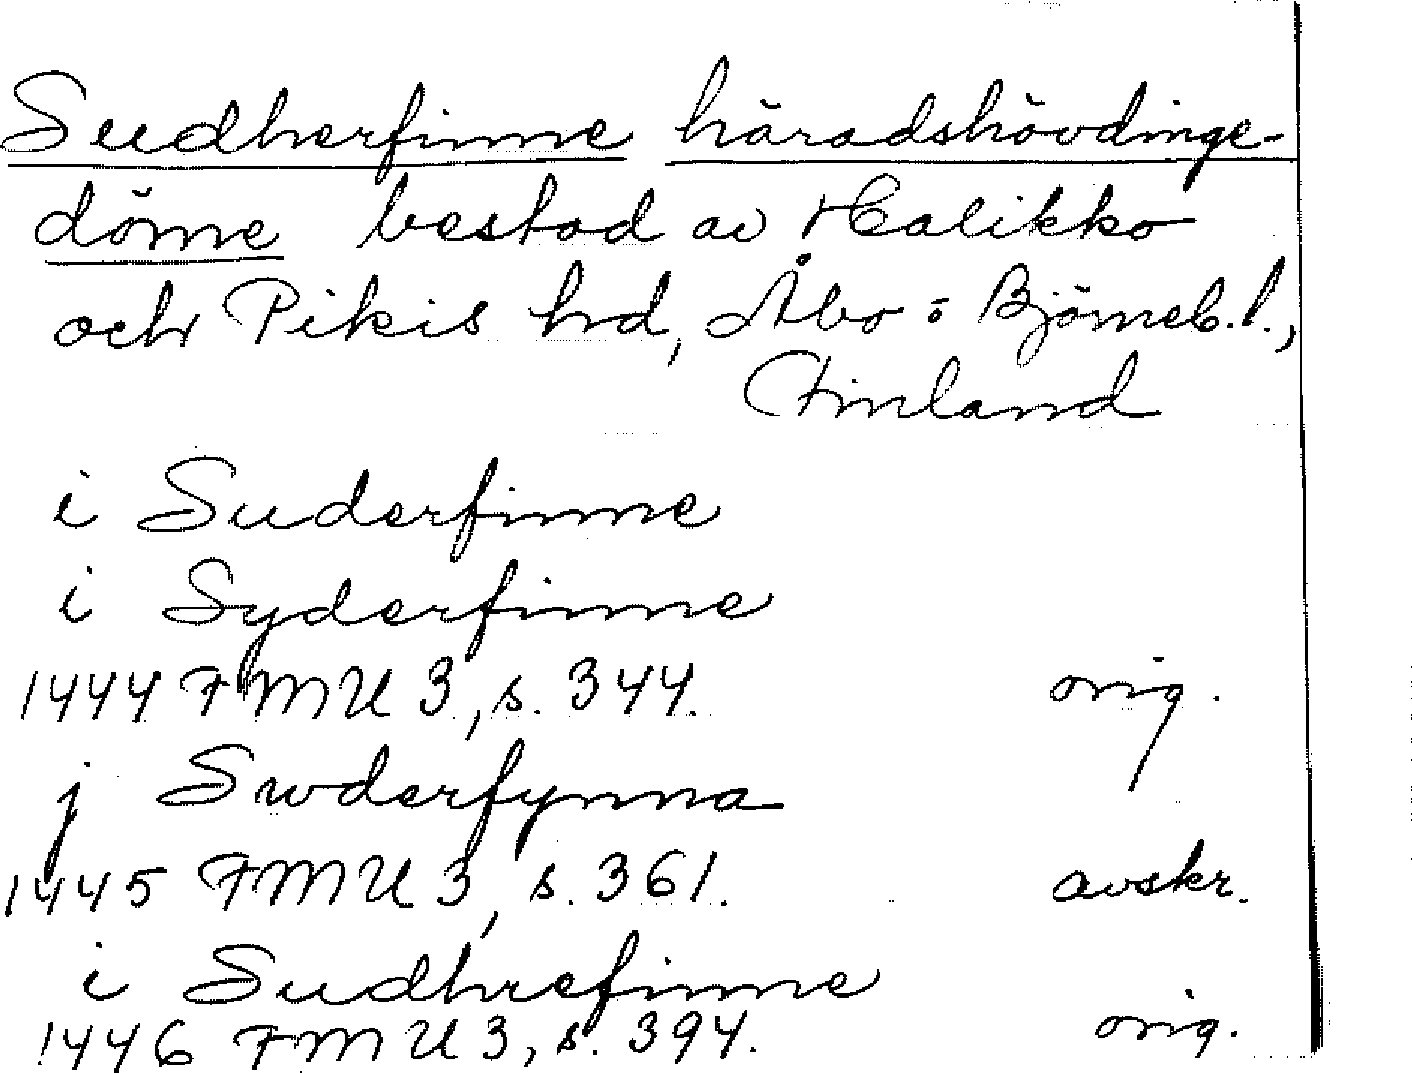 Sudherfinne häradshövdinge-
döme bestod av Halikko
och Pikis hd, Åbo o Björneb. l.,
Finland
i Suderfinne
i Syderfinne
1444 FMU 3, s. 344. orig.
j Swderfynna
1445 FMU 3, s. 361. avskr.
i Sudhrefinne
1446 FMU 3, s. 394. orig.